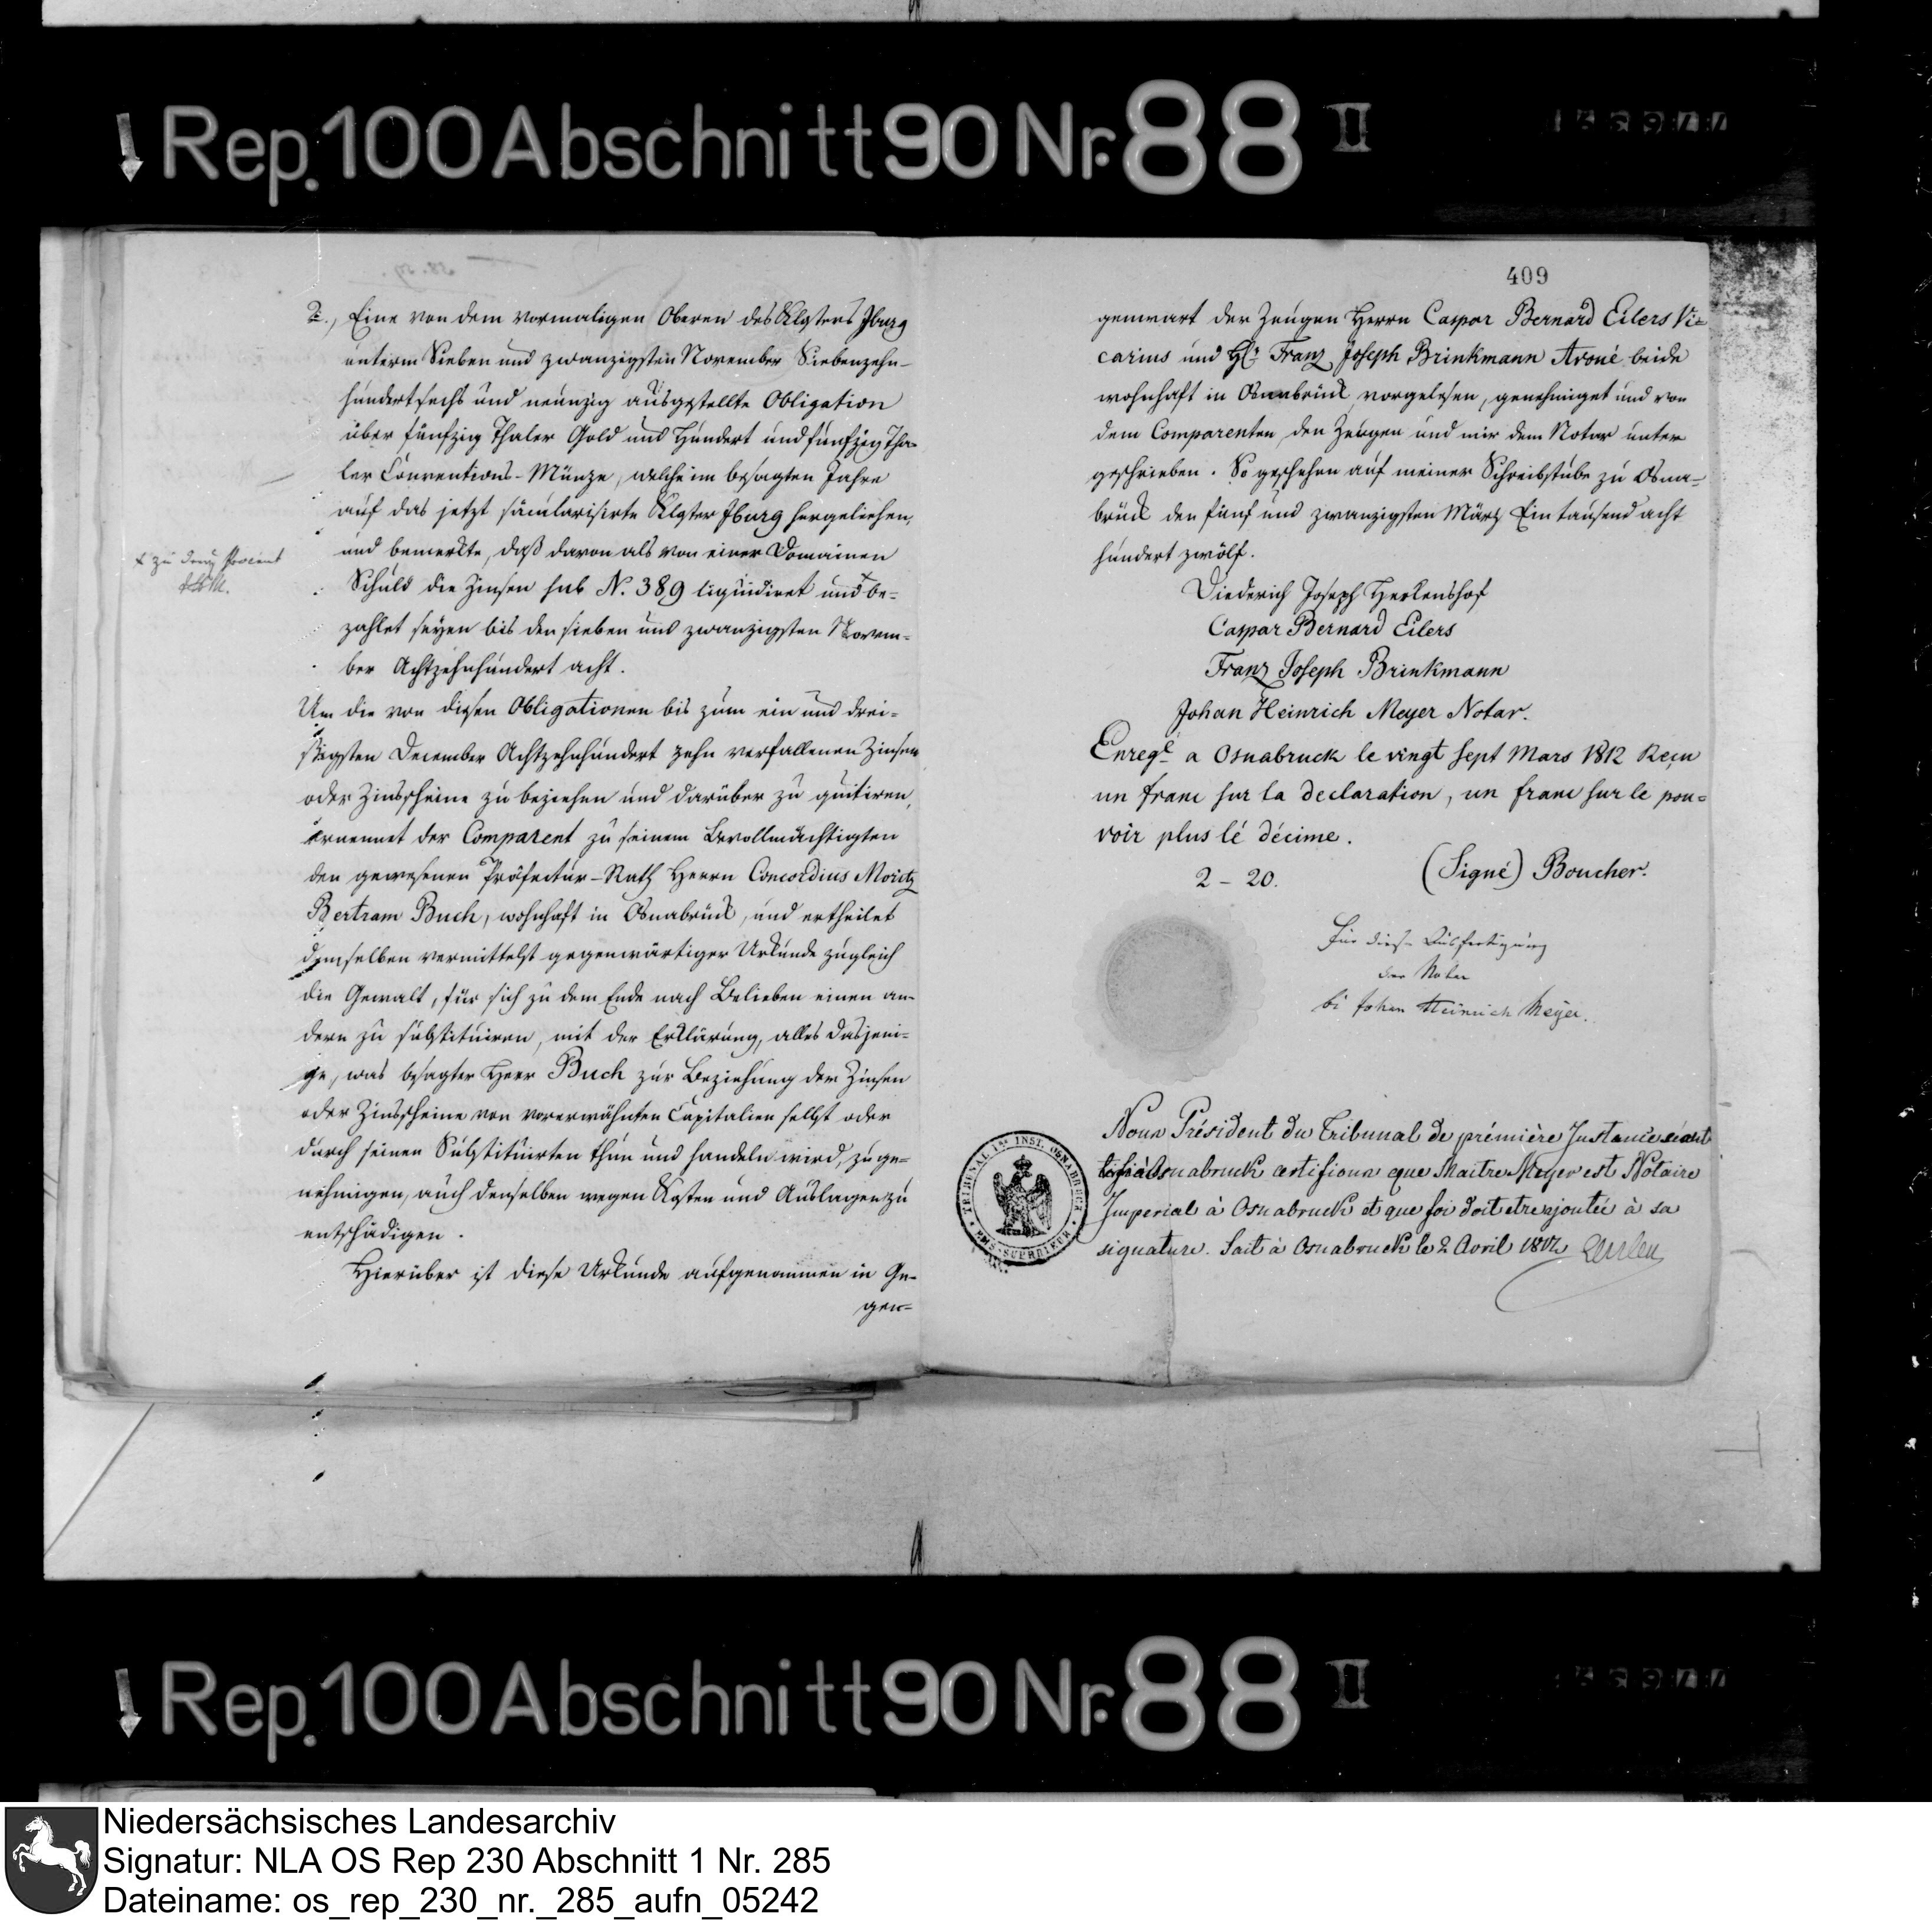 Rep. 100 Abschnitt 90 Nr. 88 II
2., Eine von dem vormaligen Oberen des Klosters Jburg
unterm Sieben und zwanzigsten November Siebenzehn-
hundert sechs und neunzig ausgestellte Obligation
über fünfzig Thaler Gold und Hundert und fünfzig Tha-
ler Conventions-Münze, welche im besagten Jahre
auf das jetzt säcularisirte Kloster Jburg hergeliehen,
und bemerkte, daß davon als von einer Domainen
Schuld die Zinsen sub N. 389 liquidiret und + be-
zahlet seyen bis den sieben und zwanzigsten Novem-
ber Achtzehnhundert acht.
+ zu drey Procent
Um die von diesen Obligationen bis zum ein und drei-
ßigsten December Achtzehnhundert zehn verfallenen Zinsen
oder Zinsscheine zu beziehen und darüber zu quitiren,
ernennet der Comparent zu seinem Bevollmächtigten
den gewesenen Präfectur-Rath Herrn Concordius Moritz
Bertram Buch, wohnhaft in Osnabrück, und ertheilet
demselben vermittelst gegenwärtiger Urkunde zugleich
die Gewalt, für sich zu dem Ende nach Belieben einen an-
dern zu substituiren, mit der Erklärung, alles dasjeni-
ge, was besagter Herr Buch zur Beziehung der Zinsen
oder Zinsscheine von vorerwähnten Capitalien selbst oder
durch seinen Substituirten thun und handeln wird, zu ge-
nehmigen, auch denselben wegen Kosten und Auslagen zu
entschädigen.
Hierüber ist diese Urkunde aufgenommen in Ge-
gen-
409
genwart der Zeugen Herrn Caspar Bernard Eilers Vi-
carius und Hr. Franz Joseph Brinkmann Avoué beide
wohnhaft in Osnabrück vorgelesen, genehmiget und von
dem Comparenten den Zeugen und mir dem Notar unter
geschrieben. So geschehen auf meiner Schreibstube zu Osna-
brück den fünf und zwanzigsten März Ein tausend acht
hundert zwölf.
Diederich Joseph Herkenhof
Caspar Bernard Eilers
Franz Joseph Brinkmann
Johan Heinrich Meyer Notar.
Enregé a Osnabruck le vingt sept Mars 1812 Reçu
un franc sur la declaration, un franc sur le pou-
voir plus lé décime.
2 - 20.
(Signé) Boucher.
Für diese Ausfertigung
der Notar
Johan Heinrich Meyer.
Nous Président du Tribunal de prémière Instance séant
à Osnabruck certifions que Maitre Meyer est Notaire
Imperial à Osnabruck et que foi doit etre ajoutée à sa
signature. Fait à Osnabruck le 2 Avril 1812
TRIBUNAL 1RE INST. OSNABRUCK
EMS-SUPERIEUR
Rep. 100 Abschnitt 90 Nr. 88 II
Niedersächsisches Landesarchiv
Signatur: NLA OS Rep 230 Abschnitt 1 Nr. 285
Dateiname: os_rep_230_nr._285_aufn_05242